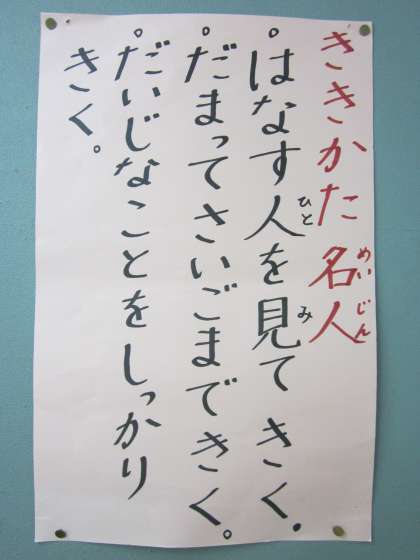 ききかた 名人
めいじん
。はなす人を見て きく.
ひと
み
。だまってさいごまできく。
。だいじなことをしっかり
きく。